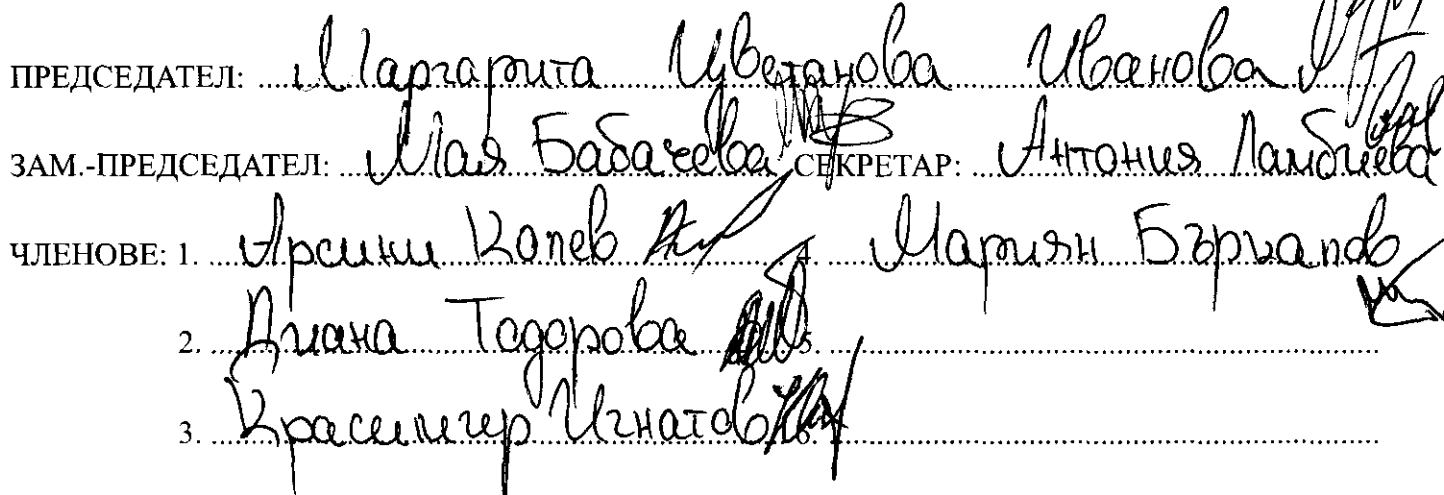 ПРЕДСЕДАТЕЛ: Маргарита Цветанова Иванова
ЗАМ.-ПРЕДСЕДАТЕЛ: Мая Бабачева СЕКРЕТАР: Антония Ламбиева
ЧЛЕНОВЕ: 1. Арсини Копев 4. Мариян Бързапов
2. Диана Тодорова 5.
3. Красимир Игнатов 6.